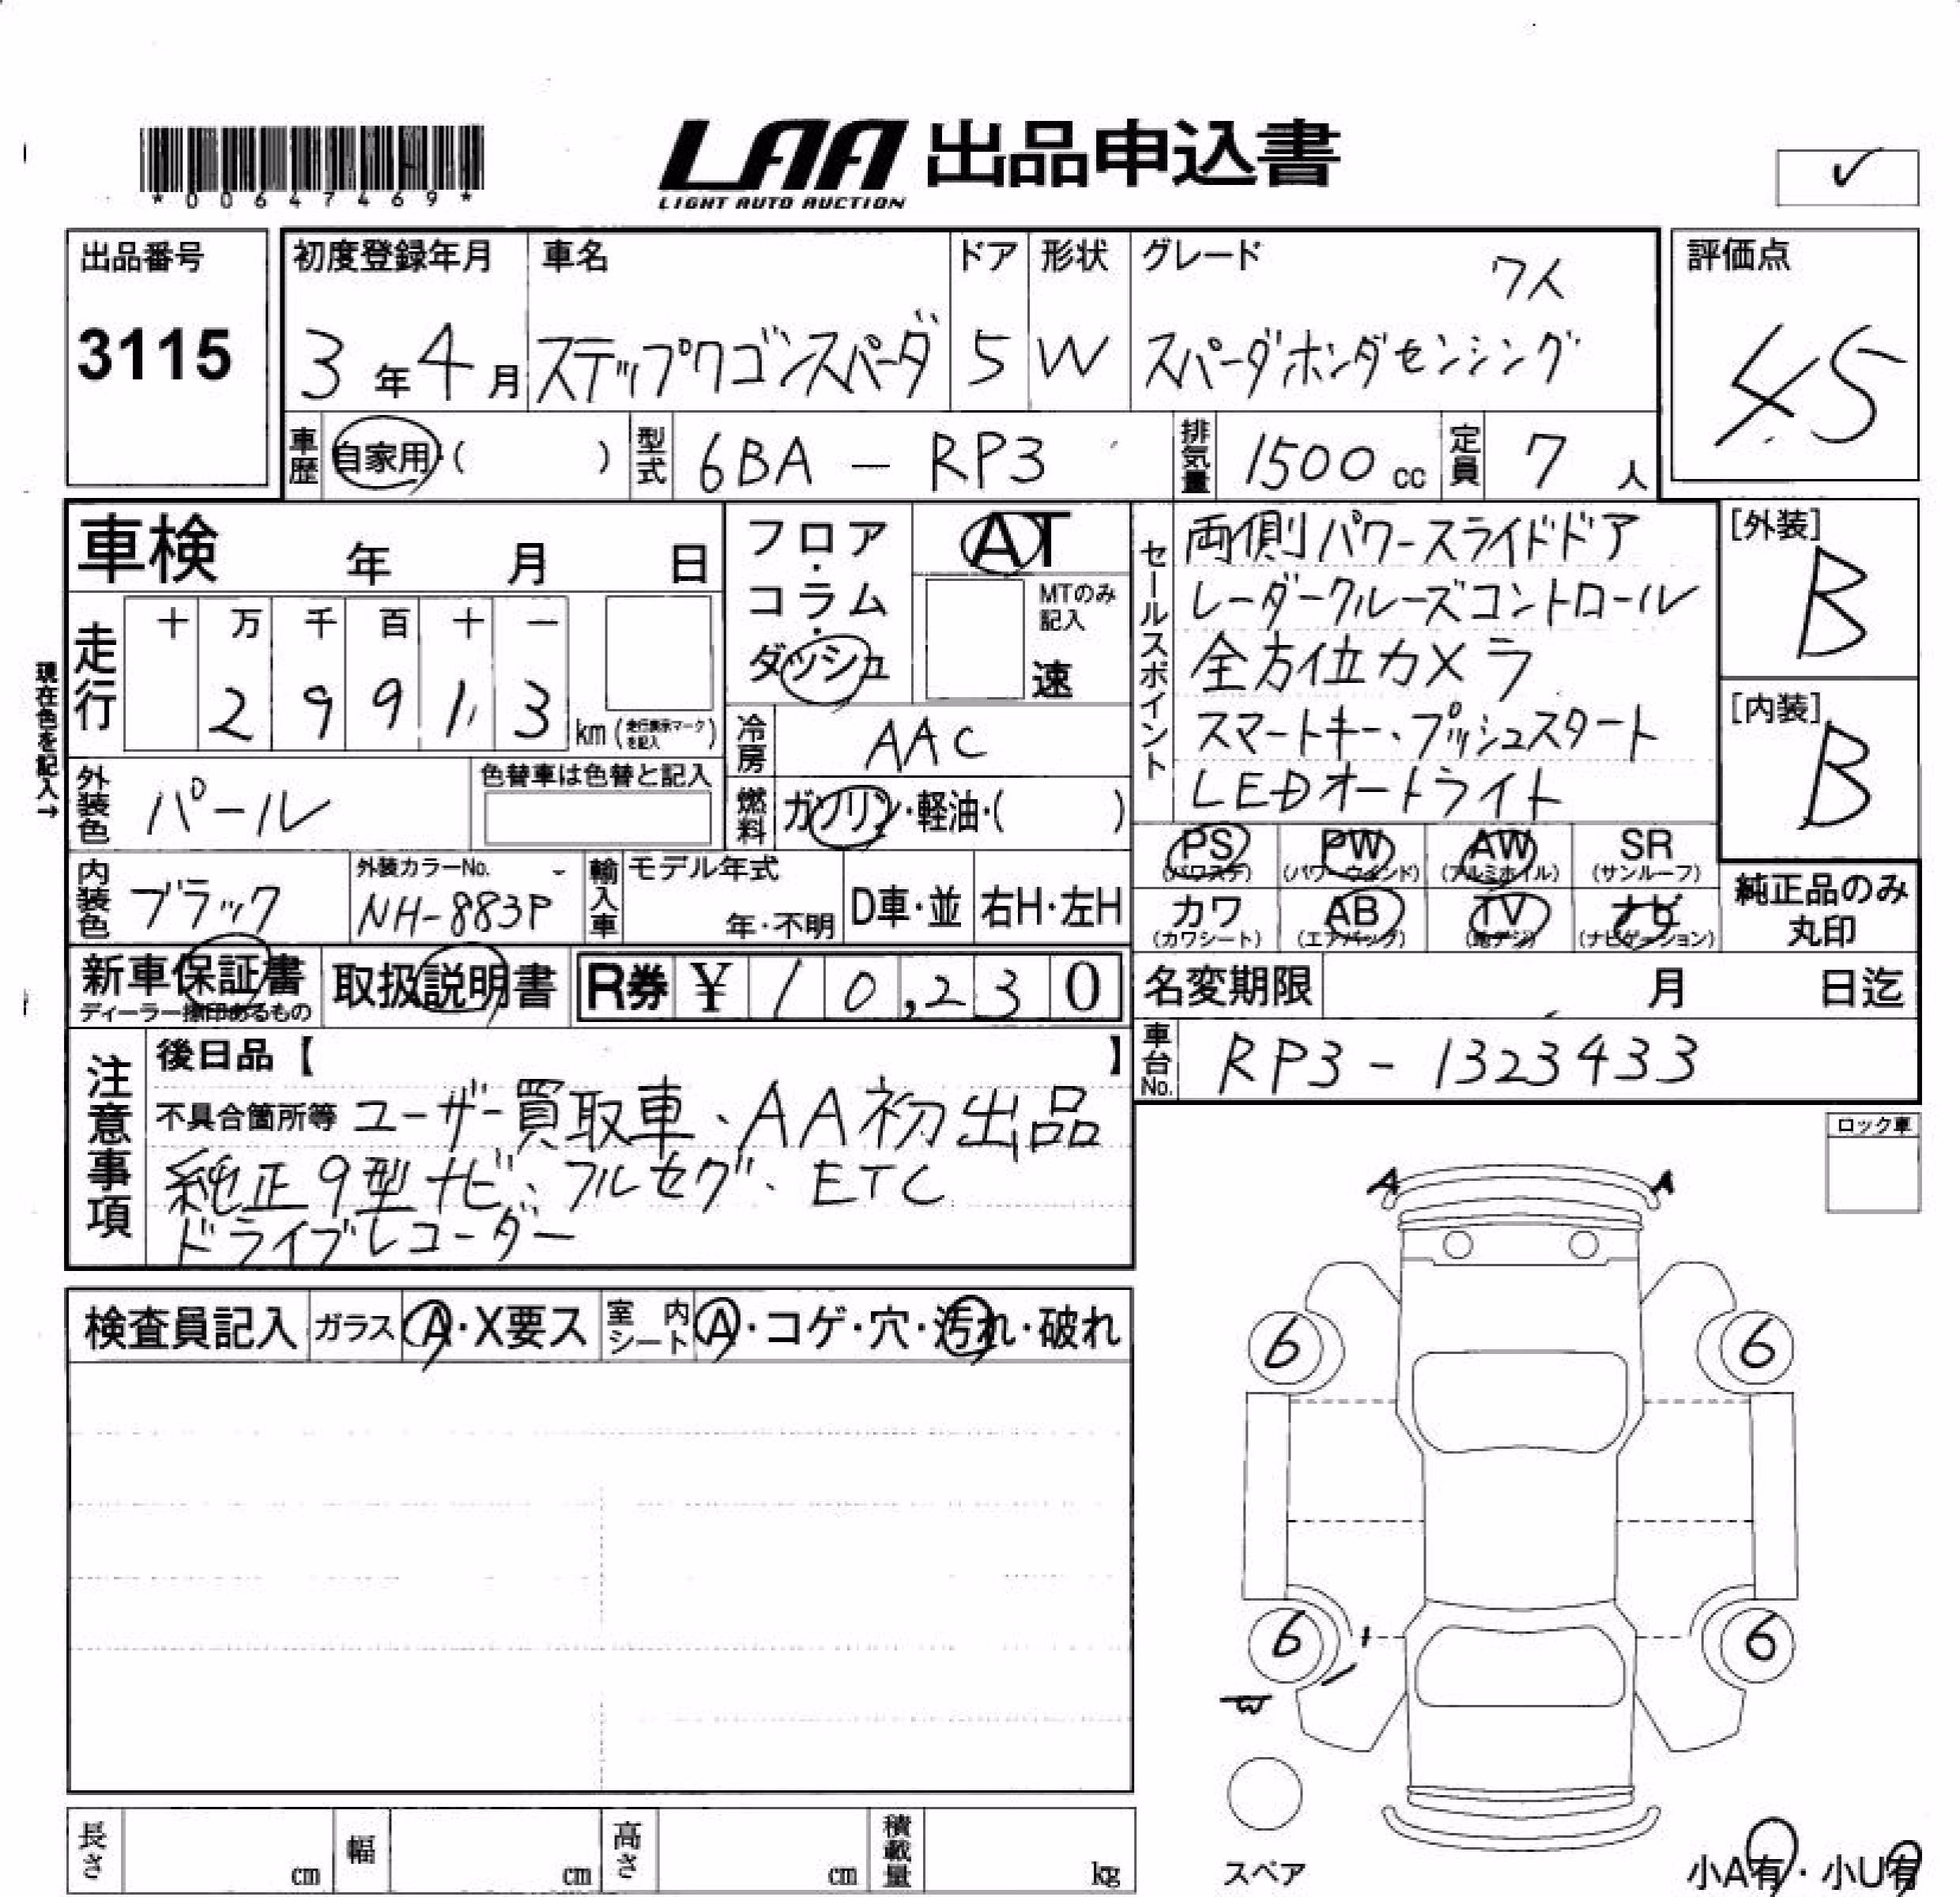 *00647469*
LAA 出品申込書
LIGHT AUTO AUCTION
✓
出品番号
3115
初度登録年月 車名 ドア 形状 グレード 7人
3年4月 ステップワゴンスパーダ 5 W スパーダホンダセンシング
評価点
4.5
車歴 自家用・( ) 型式 6BA - RP3 排気量 1500 cc 定員 7 人
車検 年 月 日
フロア・コラム・ダッシュ
AT
MTのみ記入
速
現在色を記入→
走行 十 万 千 百 十 一
2 9 9 1 3 km (走行表示マークを記入)
セールスポイント
両側パワースライドドア
レーダークルーズコントロール
全方位カメラ
スマートキー、プッシュスタート
LEDオートライト
[外装]
B
[内装]
B
冷房 AAC
外装色 パール 色替車は色替と記入
燃料 ガソリン・軽油・( )
PS (パワステ) PW (パワーウィンド) AW (アルミホイル) SR (サンルーフ)
カワ (カワシート) AB (エアバッグ) TV (地デジ) ナビ (ナビゲーション)
純正品のみ丸印
内装色 ブラック 外装カラーNo. NH-883P
輸入車 モデル年式 年・不明 D車・並 右H・左H
新車保証書 取扱説明書 R券 ¥ 10,230
ディーラー捺印あるもの
名変期限 月 日迄
車台No. RP3 - 1323433
注意事項
後日品【 】
不具合箇所等 ユーザー買取車、AA初出品
純正9型ナビ、フルセグ、ETC
ドライブレコーダー
ロック車
A A
検査員記入 ガラス A・X要ス 室内シート A・コゲ・穴・汚れ・破れ
6 6
6 6
W
スペア
小A有・小U有
長さ cm 幅 cm 高さ cm 積載量 kg